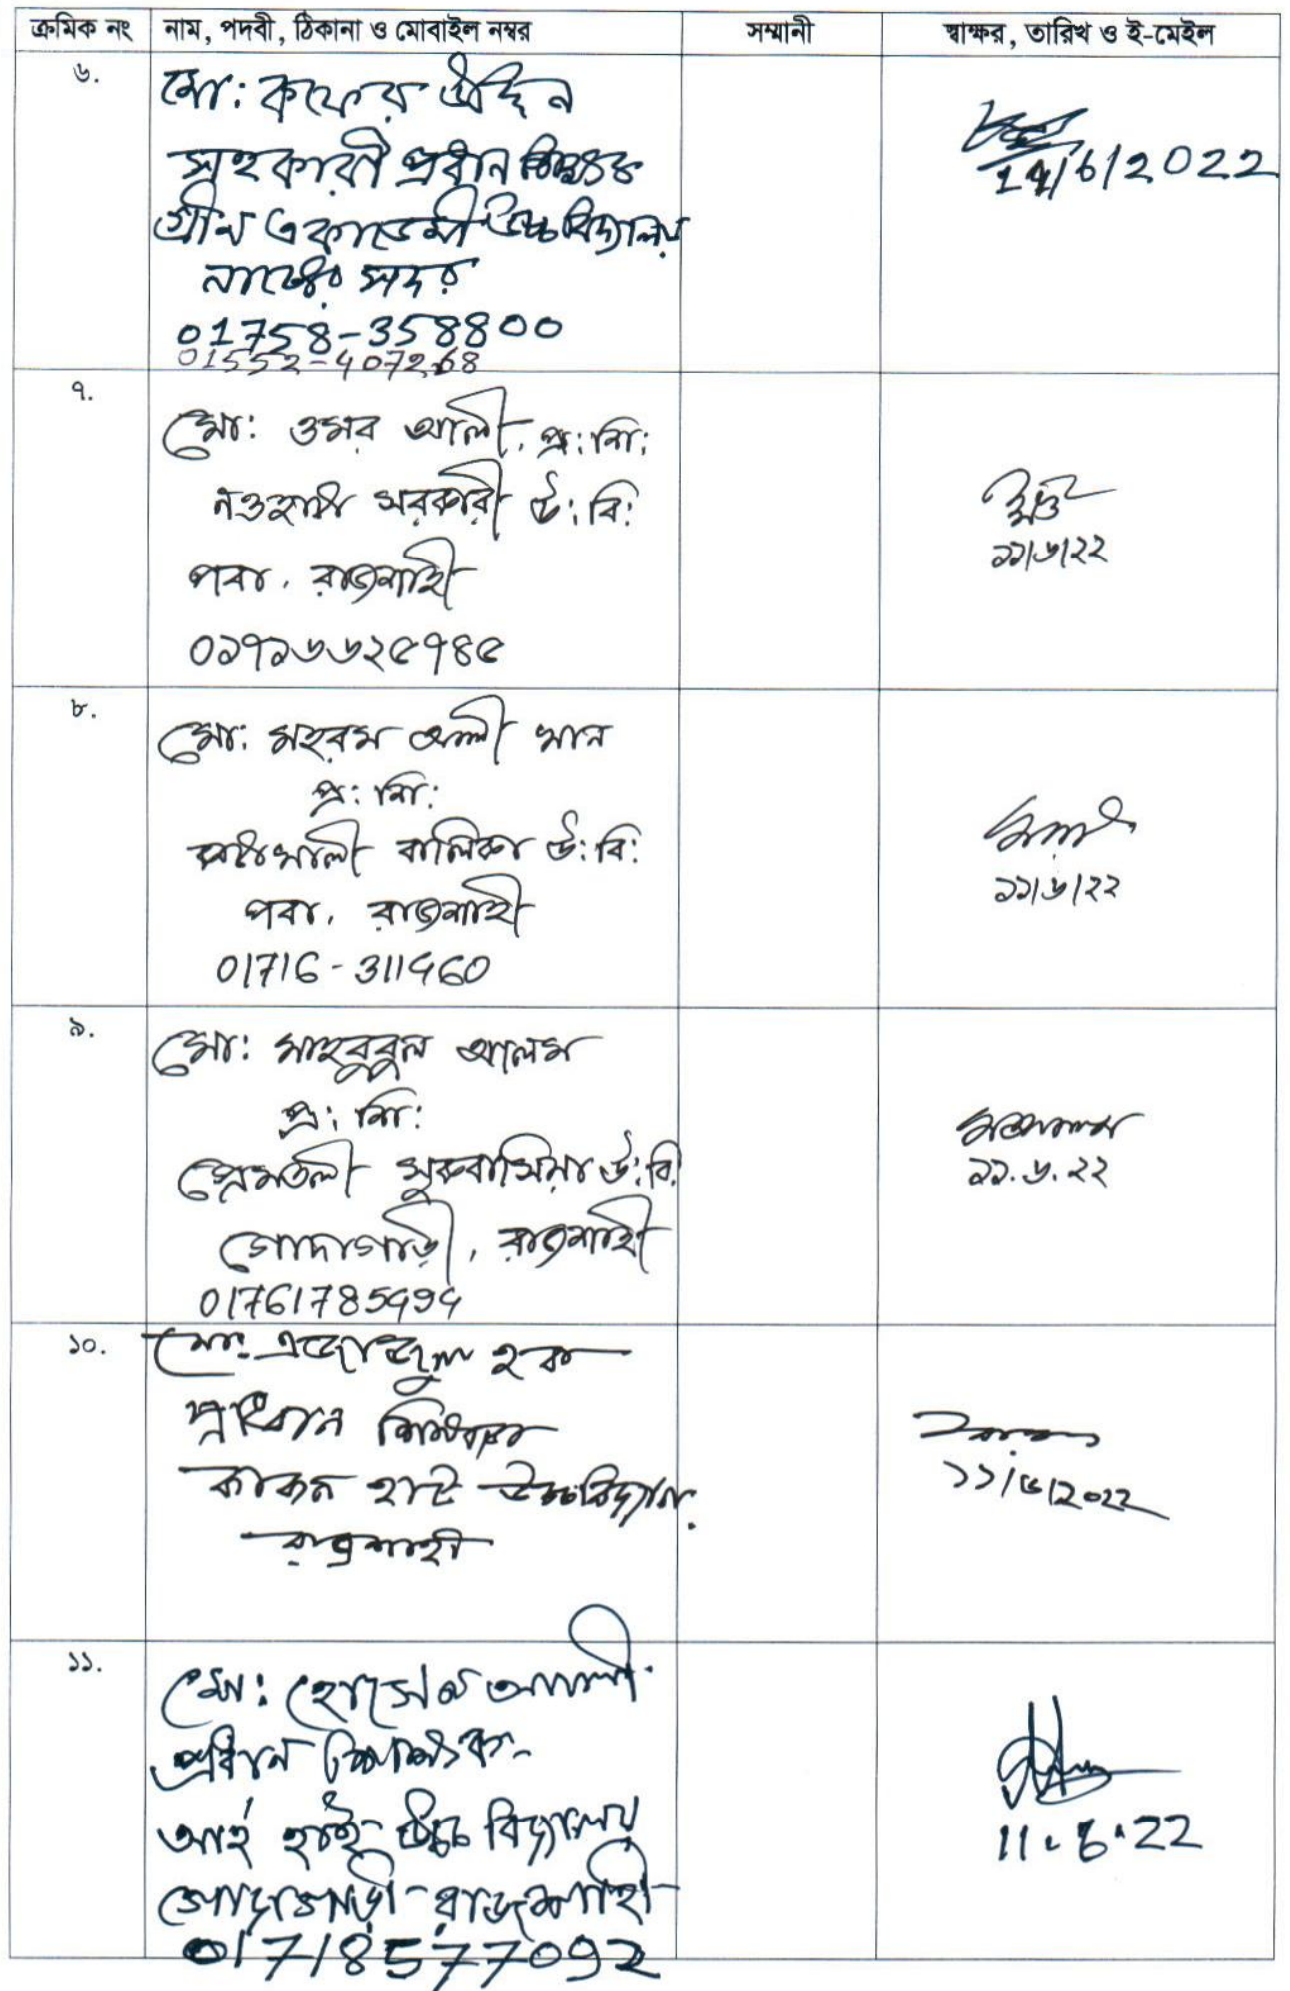 ক্রমিক নং নাম, পদবী, ঠিকানা ও মোবাইল নম্বর সম্মানী স্বাক্ষর, তারিখ ও ই-মেইল
৬.
মো: কফের উদ্দিন
সহকারী প্রধান শিক্ষক
গ্রীন একাডেমী উচ্চ বিদ্যালয়
নাটোর সদর
01758-358800
01552-407268
14/6/2022
৭.
মো: ওমর আলী, প্র: শি:
নওহাটা সরকারী উ: বি:
পবা, রাজশাহী
০১৭১৬৬২৫৭৪৫
১১/৬/২২
৮.
মো: মহরম আলী খান
প্র: শি:
কাটাখালী বালিকা উ: বি:
পবা, রাজশাহী
01716-311460
১১/৬/২২
৯.
মো: মাহবুবুল আলম
প্র: শি:
প্রেমতলী সুকবাসিয়া উ: বি:
গোদাগাড়ী, রাজশাহী
01761785494
১১.৬.২২
১০.
মো: হক
প্রধান শিক্ষক
কাকন হাট উচ্চ বিদ্যালয়
রাজশাহী
১১/৬/২০২২
১১.
মো: হোসেন আলী
প্রধান শিক্ষক
হাই উচ্চ বিদ্যালয়
গোদাগাড়ী রাজশাহী
01718577092
11.6.22